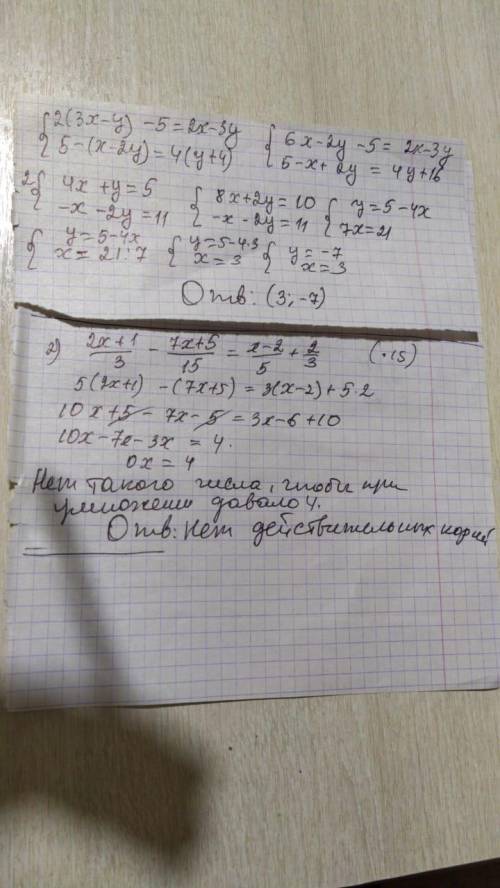 {2(3x-y) -5=2x-3y {6x-2y-5= 2x-3y
5-(x-2y)=4(y+4) 5-x+2y = 4y+16
2{4x+y=5 {8x+2y=10 {y=5-4x
-x-2y=11 -x-2y=11 7x=21
{y=5-4x {y=5-4·3 {y=-7
x=21:7 x=3 x=3
Отв: (3;-7)
2) (2x+1)/3 - (7x+5)/15 = (x-2)/5 + 2/3 (·15)
5(2x+1) -(7x+5)=3(x-2)+5·2
10x+5-7x-5=3x-6+10
10x-7x-3x = 4.
0x = 4
Нет такого числа, чтобы при
умножении давало 4.
Отв: Нет действительных корней